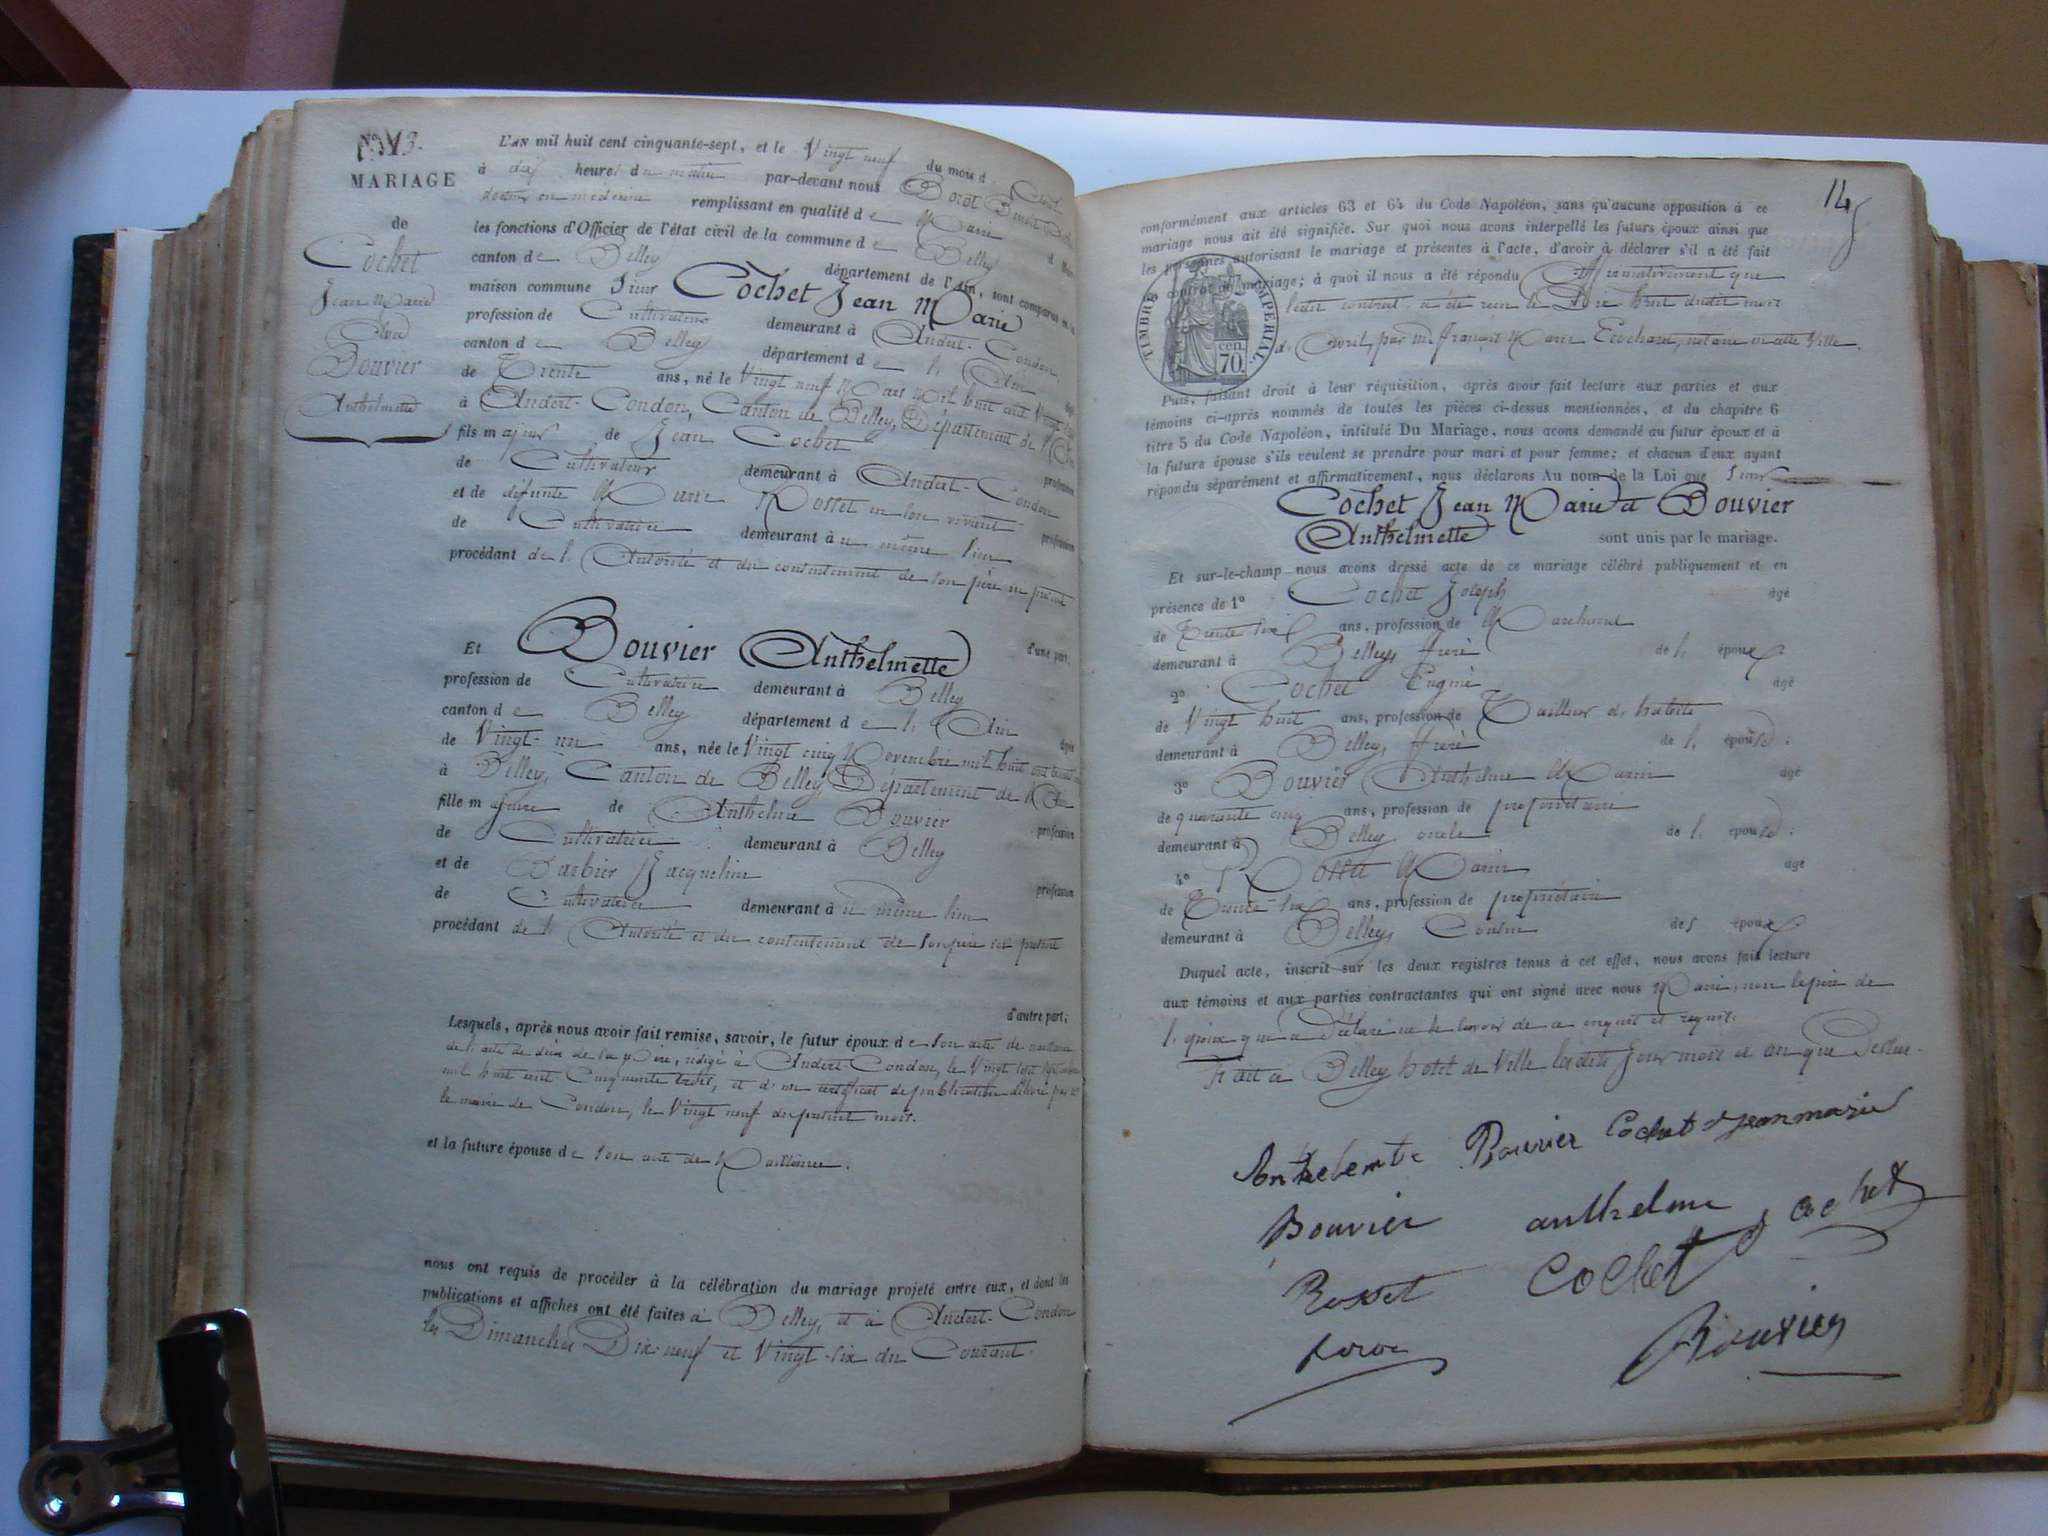 No 13.
MARIAGE
de
Cochet
Jean Marie
Avec
Bouvier
Anthelmette
L'AN mil huit cent cinquante-sept, et le Vingt neuf du mois d'Avril
à dix heures du matin par-devant nous
docteur en médecine remplissant en qualité de Maire
les fonctions d'Officier de l'état civil de la commune de Belley
canton de Belley département de l'Ain, sont comparus en la
maison commune Sieur Cochet Jean Marie
profession de Cultivateur demeurant à Andert-Condon,
canton de Belley département de l'Ain
de Trente ans, né le Vingt neuf Mars mil huit cent Vingt
à Andert-Condon, Canton de Belley, Département de l'Ain
fils majeur de Jean Cochet profession
de Cultivateur demeurant à Andert-Condon
et de défunte Marie Rosset en son vivant profession
de Cultivatrice demeurant à u même lieu
procédant de l'Autorité et du consentement de son père ici présent
d'une part.
Et Bouvier Anthelmette
profession de Cultivatrice demeurant à Belley
canton de Belley département de l'Ain âgée
de Vingt-un ans, née le Vingt cinq Novembre mil huit cent trente
à Belley, Canton de Belley, Département de l'Ain
fille majeure de Anthelme Bouvier profession
de Cultivatrice demeurant à Belley
et de Barbier Jacqueline profession
de Cultivatrice demeurant à u même lieu
procédant de l'Autorité et du consentement de son père ici présent
d'autre part;
Lesquels, après nous avoir fait remise, savoir, le futur époux de son acte de naissance
de l'acte de décès de sa mère, rédigé à Andert-Condon, le Vingt
mil huit cent Cinquante trois, et d'un certificat de publication délivré par
le maire de Condon, le Vingt neuf du présent mois.
et la future épouse de son acte de Naissance.
nous ont requis de procéder à la célébration du mariage projeté entre eux, et dont les
publications et affiches ont été faites à Belley, et à Andert-Condon
les Dimanches Dix-neuf et Vingt-six du Courant.
145
conformément aux articles 63 et 64 du Code Napoléon, sans qu'aucune opposition à ce
mariage nous ait été signifiée. Sur quoi nous avons interpellé les futurs époux ainsi que
les personnes autorisant le mariage et présentes à l'acte, d'avoir à déclarer s'il a été fait
un contrat de mariage; à quoi il nous a été répondu Affirmativement que
ledit contrat a été reçu le Dix huit dudit mois
d'Avril, par me François Marie Ecochard, notaire en cette Ville.
TIMBRE IMPERIAL
70 cen.
Puis, faisant droit à leur réquisition, après avoir fait lecture aux parties et aux
témoins ci-après nommés de toutes les pièces ci-dessus mentionnées, et du chapitre 6
titre 5 du Code Napoléon, intitulé Du Mariage, nous avons demandé au futur époux et à
la future épouse s'ils veulent se prendre pour mari et pour femme; et chacun d'eux ayant
répondu séparément et affirmativement, nous déclarons Au nom de la Loi que Sieur
Cochet Jean Marie et Bouvier
Anthelmette sont unis par le mariage.
Et sur-le-champ nous avons dressé acte de ce mariage célébré publiquement et en
présence de 1° Cochet Joseph âgé
de Trente six ans, profession de Marchand
demeurant à Belley, frère de l'époux.
2° Cochet Eugène âgé
de Vingt huit ans, profession de Tailleur d'habits
demeurant à Belley, frère de l'époux;
3° Bouvier Anthelme Marin âgé
de quarante cinq ans, profession de propriétaire
demeurant à Belley oncle de l'épouse;
4° Rosset Marin âgé
de Trente-six ans, profession de propriétaire
demeurant à Belley, Cousin des époux.
Duquel acte, inscrit sur les deux registres tenus à cet effet, nous avons fait lecture
aux témoins et aux parties contractantes qui ont signé avec nous Maire, non le père de
l'époux qui a déclaré ne le savoir de ce enquis et requis.
Fait à Belley hôtel de Ville lesdits jour mois et an que Dessus.
Anthelemte Bouvier Cochet Jean marie
Bouvier anthelme Cochet
Rosset Cochet
Bouvier